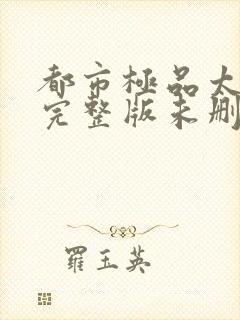 都市極品太
完整版未刪
羅玉英